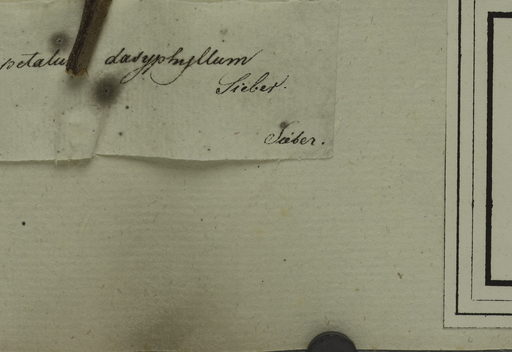 petalu dasyphyllum
Sieber.
Sieber.